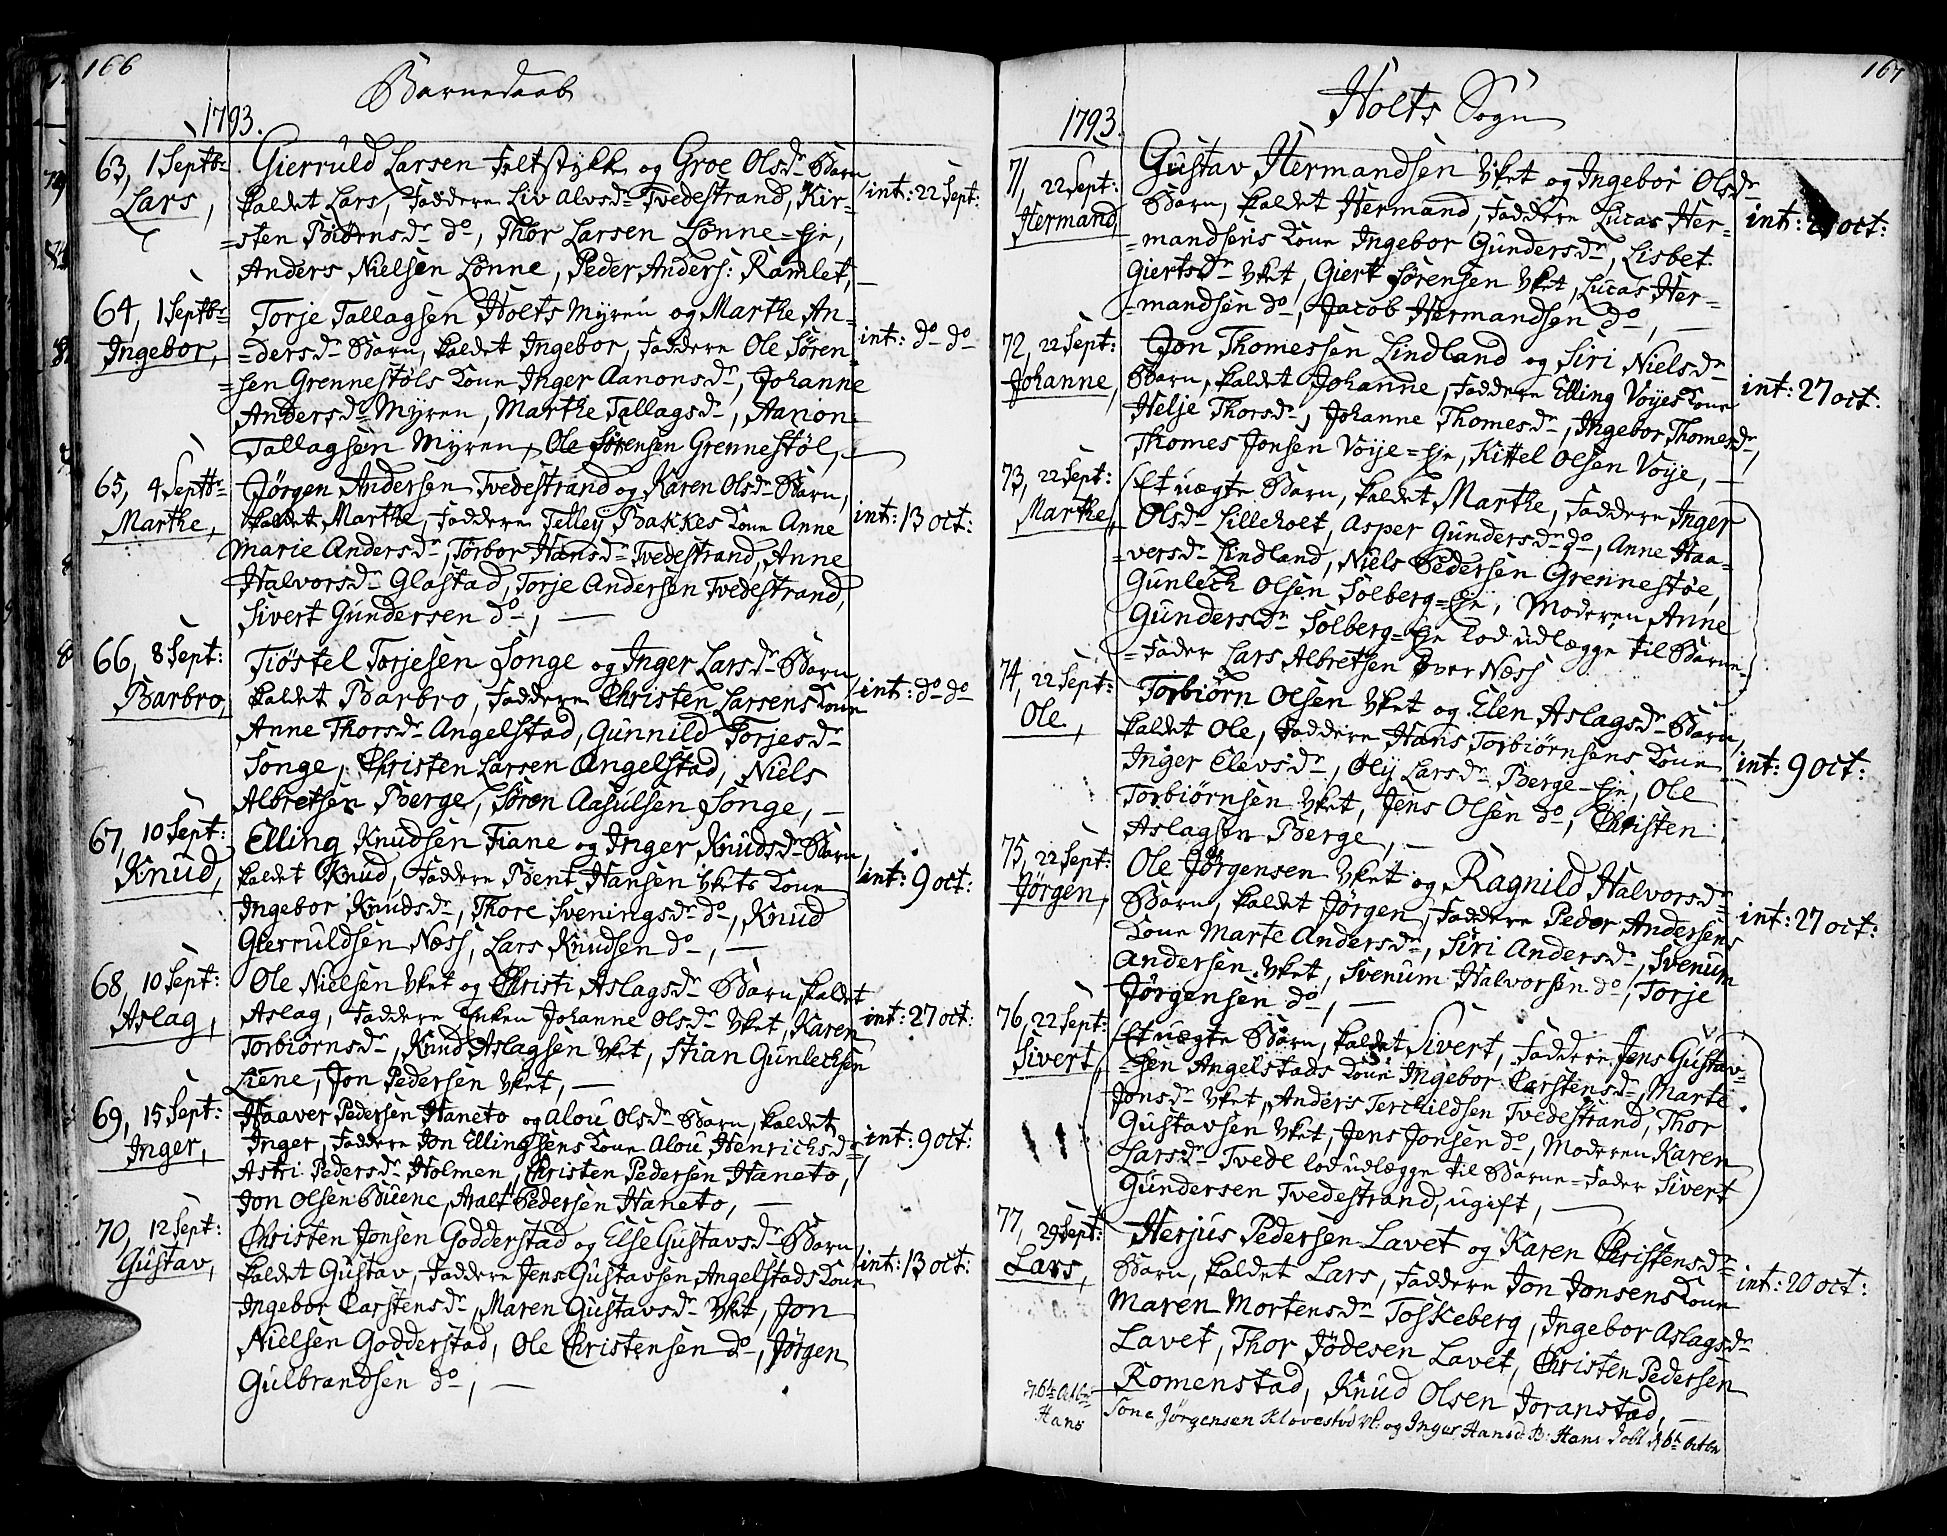 166
Barnedaab
1793.
63, 1 Septbr
Lars,
Gierruld Larsen Feltstykke og Groe Olsdr Barn
kaldet Lars, Faddere Liv Alvsdr Tvedestrand, Kir-
=sten Biörnsdr do, Thor Larsen Lönne=Eje,
Anders Nielsen Lönne, Peder Anders: Ramlet,
int: 22 Sept:
64, 1 Septbr
Ingebor,
Torje Tallagsen Holts Myren og Marthe An-
=dersdr Barn, kaldet Ingebor, Faddere Ole Sören
=sen Grennestöls Kone Inger Aanonsdr, Johanne
Andersdr Myren, Marthe Tallagsdr, Aanon
Tallagsen Myren, Ole Sörensen Grennestöl,
int: do do
65, 4 Septbr
Marthe,
Jörgen Andersen Tvedestrand og Karen Olsdr Barn,
kaldet Marthe, Faddere Tellef Bakkes Kone Anne
Marie Andersdr, Torbor Hansdr Tvedestrand, Anne
Halvorsdr Glastad, Torje Andersen Tvedestrand,
Sivert Gundersen do,
int: 13 oct:
66, 8 Sept:
Barbro,
Tiöstel Torjesen Songe og Inger Larsdr Barn,
kaldet Barbro, Faddere Christen Larsens Kone
Anne Thorsdr Angelstad, Gunnild Torjesdr
Songe, Christen Larsen Angelstad, Niels
Albretsen Berge, Sören Aasulsen Songe,
int: do do
67, 10 Sept:
Knud,
Elling Knudsen Fiane og Inger Knudsdr Barn,
kaldet Knud, Faddere Bent Hansen Vkets Kone
Ingebor Knudsdr, Thore Sveningsdr do, Knud
Gierruldsen Næss, Lars Knudsen do,
int: 9 oct:
68, 10 Sept:
Aslag,
Ole Nielsen Vket og Christi Aslagsdr Barn, kaldet
Aslag, Faddere Enken Johanne Olsdr Vket, Karen
Torbiörnsdr, Knud Aslagsen Vket, Stian Gunlechsen
Liene, Jon Pedersen Vket,
int: 27 oct:
69, 15 Sept:
Inger,
Haaver Pedersen Haneto og Alou Olsdr Barn, kaldet
Inger, Faddere Jon Ellingsens Kone Alou Henrichsdr
Astri Pedersdr Holmen, Christen Pedersen Haneto,
Jon Olsen Buene, Avalt Pedersen Haneto,
int: 9 oct:
70, 12 Sept:
Gustav,
Christen Jonsen Godderstad og Else Gustavsdr Barn
kaldet Gustav, Faddere Jens Gustavsen Angelstads Kone
Ingebor Carstensdr, Maren Gustavsdr Vket, Jon
Nielsen Godderstad, Ole Christensen do, Jörgen
Gulbrandsen do,
int: 13 oct:
167
Holts Sogn
1793.
71, 22 Sept:
Hermand,
Gustav Hermandsen Vket og Ingebor Olsdr
Barn, kaldet Hermand, Faddere Lucas Her-
=mandsens Kone Ingebor Gundersdr, Lisbet
Giertsdr Vket, Giert Sörensen Vket, Lucas Her-
=mandsen do, Jacob Hermandsen do,
int: oct:
72, 22 Sept:
Johanne,
Jon Thomessen Lindland og Siri Nielsdr
Barn, kaldet Johanne, Faddere Elling Voijes Kone
Helje Thorsdr, Johanne Thomesdr, Ingebor Thomesdr,
Thomes Jonsen Voije=Eje, Kittel Olsen Voije,
int: 27 oct:
73, 22 Sept:
Marthe,
Et uægte Barn, kaldet Marthe, Faddere Inger
Olsdr Lilleholt, Asper Gundersdr do, Anne Haa-
=versdr Lindland, Niels Pedersen Grennestöe,
Gunlech Olsen Solberg=Eje, Moderen Anne
Gundersdr Solberg=Eje lod udlægge til Barne-
=Fader Lars Albretsen Over Næss
74, 22 Sept:
Ole,
Torbiörn Olsen Vket og Elen Aslagsdr Barn,
kaldet Ole, Faddere Hans Torbiörnsens Kone
Inger Elevsdr, Olij Larsdr Berge=Eje, Ole
Torbiörnsen Vket, Jens Olsen do, Christen
Aslagsen Berge,
int: 9 oct:
75, 22 Sept:
Jörgen,
Ole Jörgensen Vket og Ragnild Halvorsdr
Barn, kaldet Jörgen, Faddere Peder Andersens
Kone Marte Andersdr, Siri Andersdr, Svenum
Andersen Vket, Svenum Halvorsen do, Torje
Jörgensen do,
int: 27 oct:
76, 22 Sept:
Sivert,
Et uægte Barn, kaldet Sivert, Faddere Jens Gustav-
=sen Angelstads Kone Ingebor Carstensdr, Marte
Jonsdr Vket, Anders Terchildsen Tvedestrand, Thor
Gustavsen Vket, Jens Jonsen do, Moderen Karen
Larsdr Tvede lod udlægge til Barne=Fader Sivert
Gundersen Tvedestrand, ugift,
77, 29 Sept:
Lars,
Herjus Pedersen Lavet og Karen Christensdr
Barn, kaldet Lars, Faddere Jon Jonsens Kone
Maren Mortensdr Toskeberg, Ingebor Aslagsdr
Lavet, Thor Jödesen Lavet, Christen Pedersen
Romenstad, Knud Olsen Joranstad,
int: 20 oct:
Hans
Jörgensen og Hansd: B: Hans